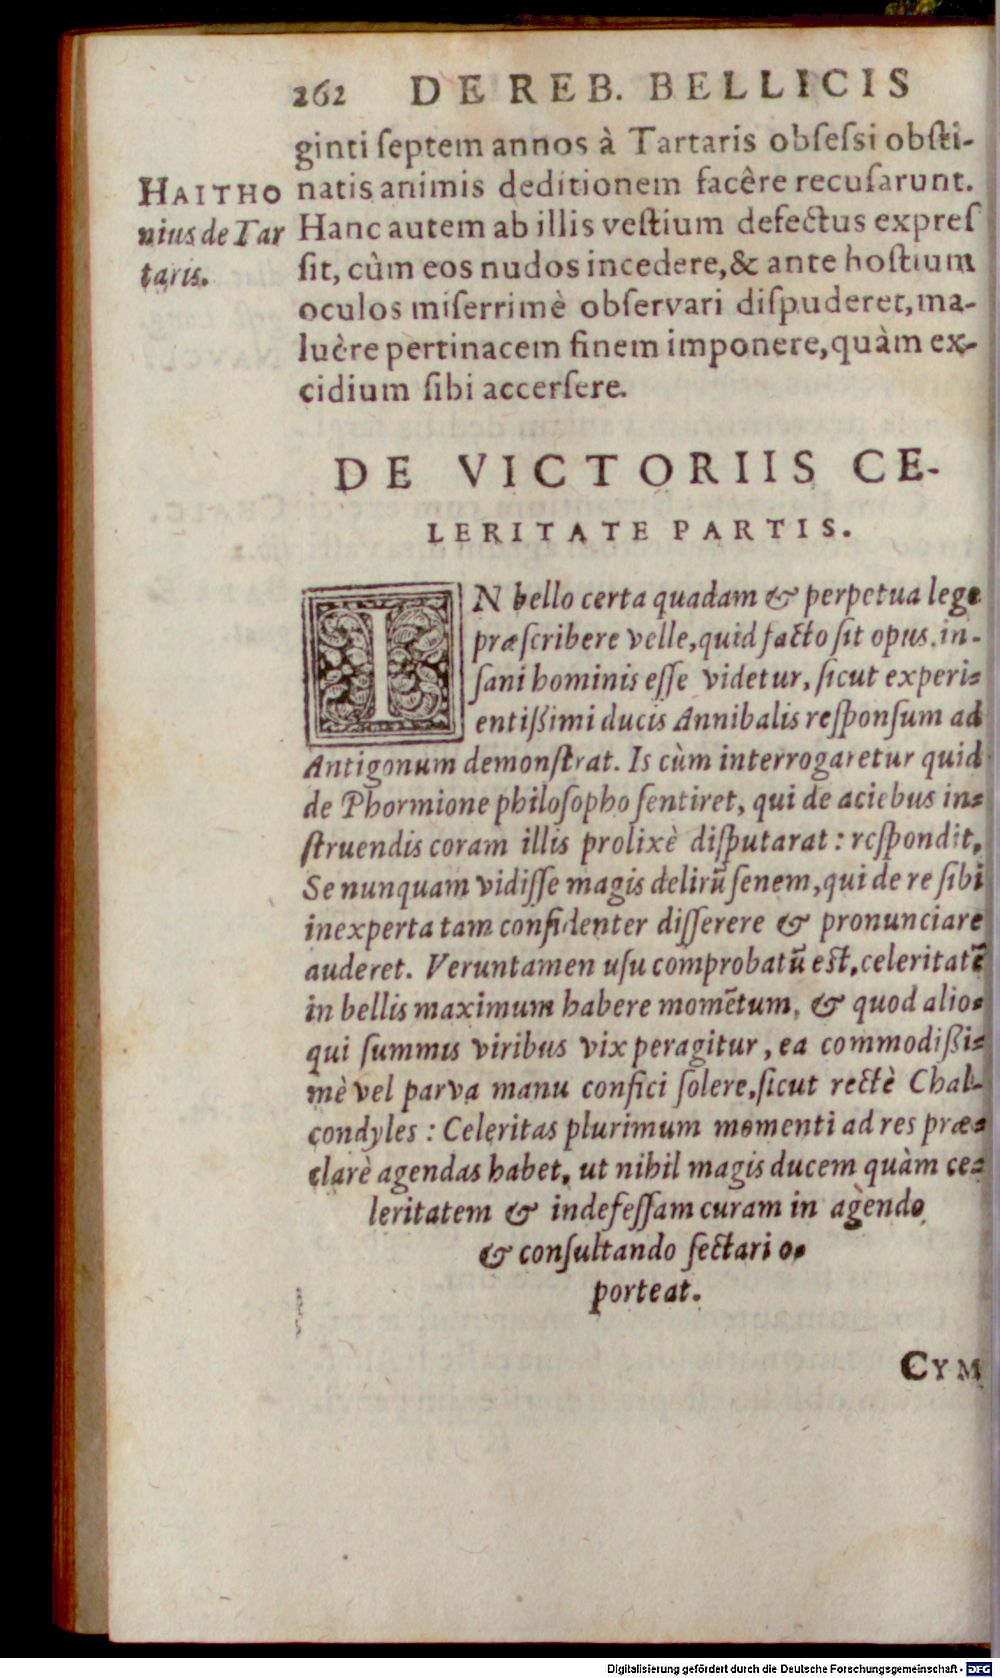 262 DE REB. BELLICIS
ginti ſeptem annos à Tartaris obſeſsi obſti-
natis animis deditionem facêre recuſarunt.
Hanc autem ab illis veſtium defectus expreſ
ſit, cùm eos nudos incedere, & ante hoſtium
oculos miſerrimè obſervari diſpuderet, ma-
luêre pertinacem finem imponere, quàm ex-
cidium ſibi accerſere.
HAITHO
nius de Tar
taris.
DE VICTORIIS CE-
LERITATE PARTIS.
IN bello certa quadam & perpetua lege
præſcribere velle, quid facto ſit opus, in-
ſani hominis eſſe videtur, ſicut experi-
entißimi ducis Annibalis reſponſum ad
Antigonum demonſtrat. Is cùm interrogaretur quid
de Phormione philoſopho ſentiret, qui de aciebus in-
ſtruendis coram illis prolixè diſputarat: reſpondit,
Se nunquam vidiſſe magis delirũ ſenem, qui de re ſibi
inexperta tam confidenter diſſerere & pronunciare
auderet. Veruntamen uſu comprobatũ eſt, celeritatẽ
in bellis maximum habere momẽtum, & quod alio-
qui ſummis viribus vix peragitur, ea commodißi-
mè vel parva manu confici ſolere, ſicut rectè Chal-
condyles: Celeritas plurimum momenti ad res præ-
clarè agendas habet, ut nihil magis ducem quàm ce-
leritatem & indefeſſam curam in agendo
& conſultando ſectari o-
porteat.
CYM
Digitalisierung gefördert durch die Deutsche Forschungsgemeinschaft - DFG